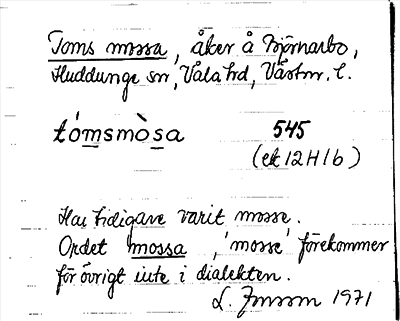 Toms mossa, åker å Björnarbo,
Huddunge sn, Våla hd, Västm. l.
tómsmòsa 545
(ek 12 H 1 b)
Har tidigare varit mosse.
Ordet mossa, 'mosse' förekommer
för övrigt inte i dialekten.
L. 1971